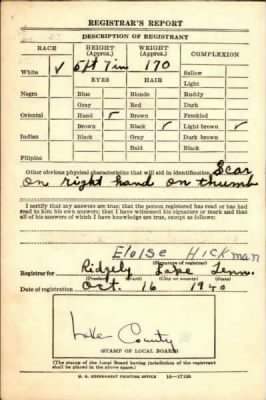 REGISTRAR'S REPORT
DESCRIPTION OF REGISTRANT
RACE HEIGHT (Approx.) WEIGHT (Approx.) COMPLEXION
White ✓ 5ft 7in 170 Sallow
Light
EYES HAIR
Negro Blue Blonde Ruddy
Gray Red Dark
Oriental Hazel ✓ Brown Freckled
Brown Black ✓ Light brown ✓
Indian Black Gray Dark brown
Bald Black
Filipino
Other obvious physical characteristics that will aid in identification Scar
on right hand on thumb
I certify that my answers are true; that the person registered has read or has had
read to him his own answers; that I have witnessed his signature or mark and that
all of his answers of which I have knowledge are true, except as follows:
Eloise Hickman
(Signature of registrar)
Registrar for Ridgely Lake Tenn.
(Precinct) (City or county) (State)
Date of registration Oct. 16 1940
Lake County
(STAMP OF LOCAL BOARD)
(The stamp of the Local Board having jurisdiction of the registrant
shall be placed in the above space.)
U. S. GOVERNMENT PRINTING OFFICE 16—17105